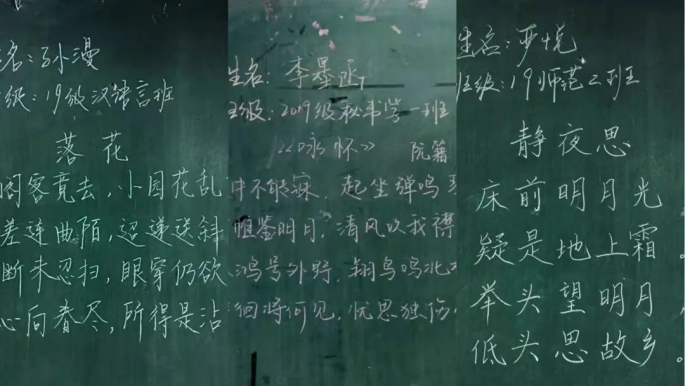 名:孙漫
级:19级汉语言班
落花
阁客竟去,小园花乱
差连曲陌,迢递送斜
断未忍扫,眼穿仍欲
心向春尽,所得是沾
生名:李墨
班级:2019级秘书学一班
《咏怀》 阮籍
中不能寐,起坐弹鸣琴
帷鉴明月,清风吹我襟
鸿号外野,翔鸟鸣北
徊将何见,忧思独伤
生名:严悦
班级:19师范2班
静夜思
床前明月光
疑是地上霜。
举头望明月,
低头思故乡。